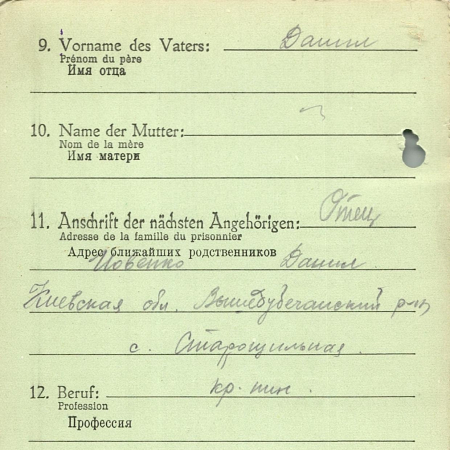 9. Vorname des Vaters: Данил
Prénom du père
Имя отца
10. Name der Mutter:
Nom de la mère
Имя матери
11. Anschrift der nächsten Angehörigen: Отец
Adresse de la famille du prisonnier
Адрес ближайших родственников
Иовенко Данил.
Киевская обл. Вышедубечанский р-н
с. Старощильная.
12. Beruf: кр.
Profession
Профессия